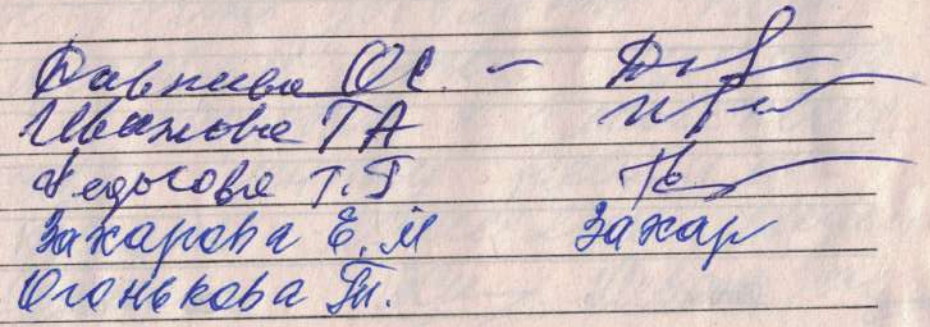 ОС. –
Иванова ТА
Федосова Т.Г
Захарова Е.М Захар
Оганькова Тт.